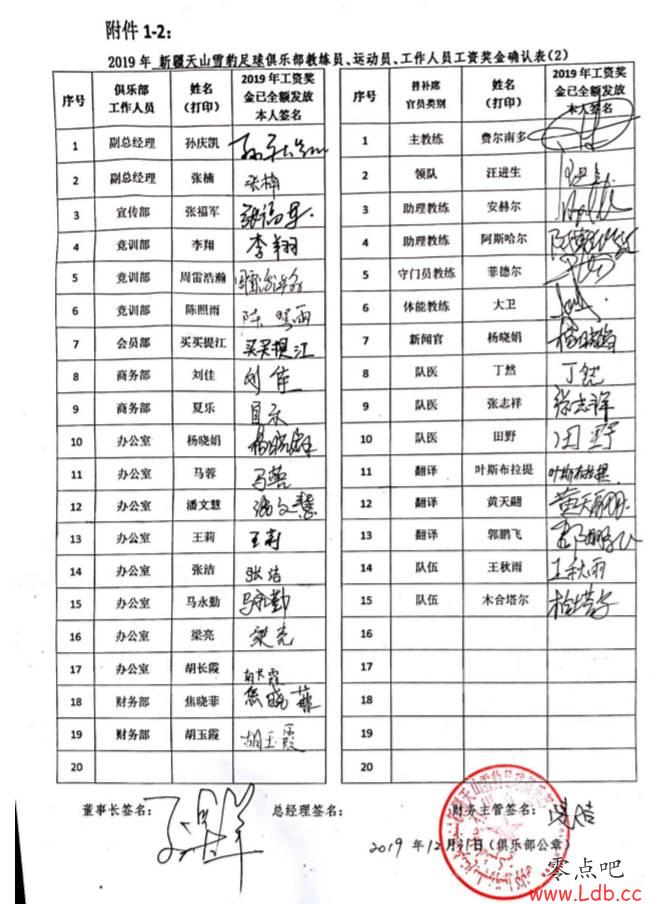 附件 1-2:
2019 年 新疆天山雪豹足球俱乐部教练员、运动员、工作人员工资奖金确认表(2)
序号 俱乐部工作人员 姓名(打印) 2019 年工资奖金已全额发放本人签名
1 副总经理 孙庆凯
2 副总经理 张楠 张楠
3 宣传部 张福军 张福军
4 竞训部 李翔 李翔
5 竞训部 周雷浩瀚
6 竞训部 陈照雨 陈照雨
7 会员部 买买提江 买买提江
8 商务部 刘佳 刘佳
9 商务部 夏乐
10 办公室 杨晓娟
11 办公室 马蓉 马蓉
12 办公室 潘文慧 潘文慧
13 办公室 王莉 王莉
14 办公室 张洁 张洁
15 办公室 马永勤 马永勤
16 办公室 梁亮 梁亮
17 办公室 胡长霞 胡长霞
18 财务部 焦晓菲 焦晓菲
19 财务部 胡玉霞 胡玉霞
20
序号 替补席官员类别 姓名(打印) 2019 年工资奖金已全额发放本人签名
1 主教练 费尔南多
2 领队 汪进生
3 助理教练 安赫尔
4 助理教练 阿斯哈尔
5 守门员教练 菲德尔
6 体能教练 大卫
7 新闻官 杨晓娟
8 队医 丁然 丁然
9 队医 张志祥 张志祥
10 队医 田野 田野
11 翻译 叶斯布拉提 叶斯布拉提
12 翻译 黄天翮 黄天翮
13 翻译 郭鹏飞 郭鹏飞
14 队伍 王秋雨 王秋雨
15 队伍 木合塔尔
16
17
18
19
20
董事长签名: 总经理签名: 财务主管签名:
2019 年 12 月 31 日(俱乐部公章)
零点吧
www.Ldb.cc